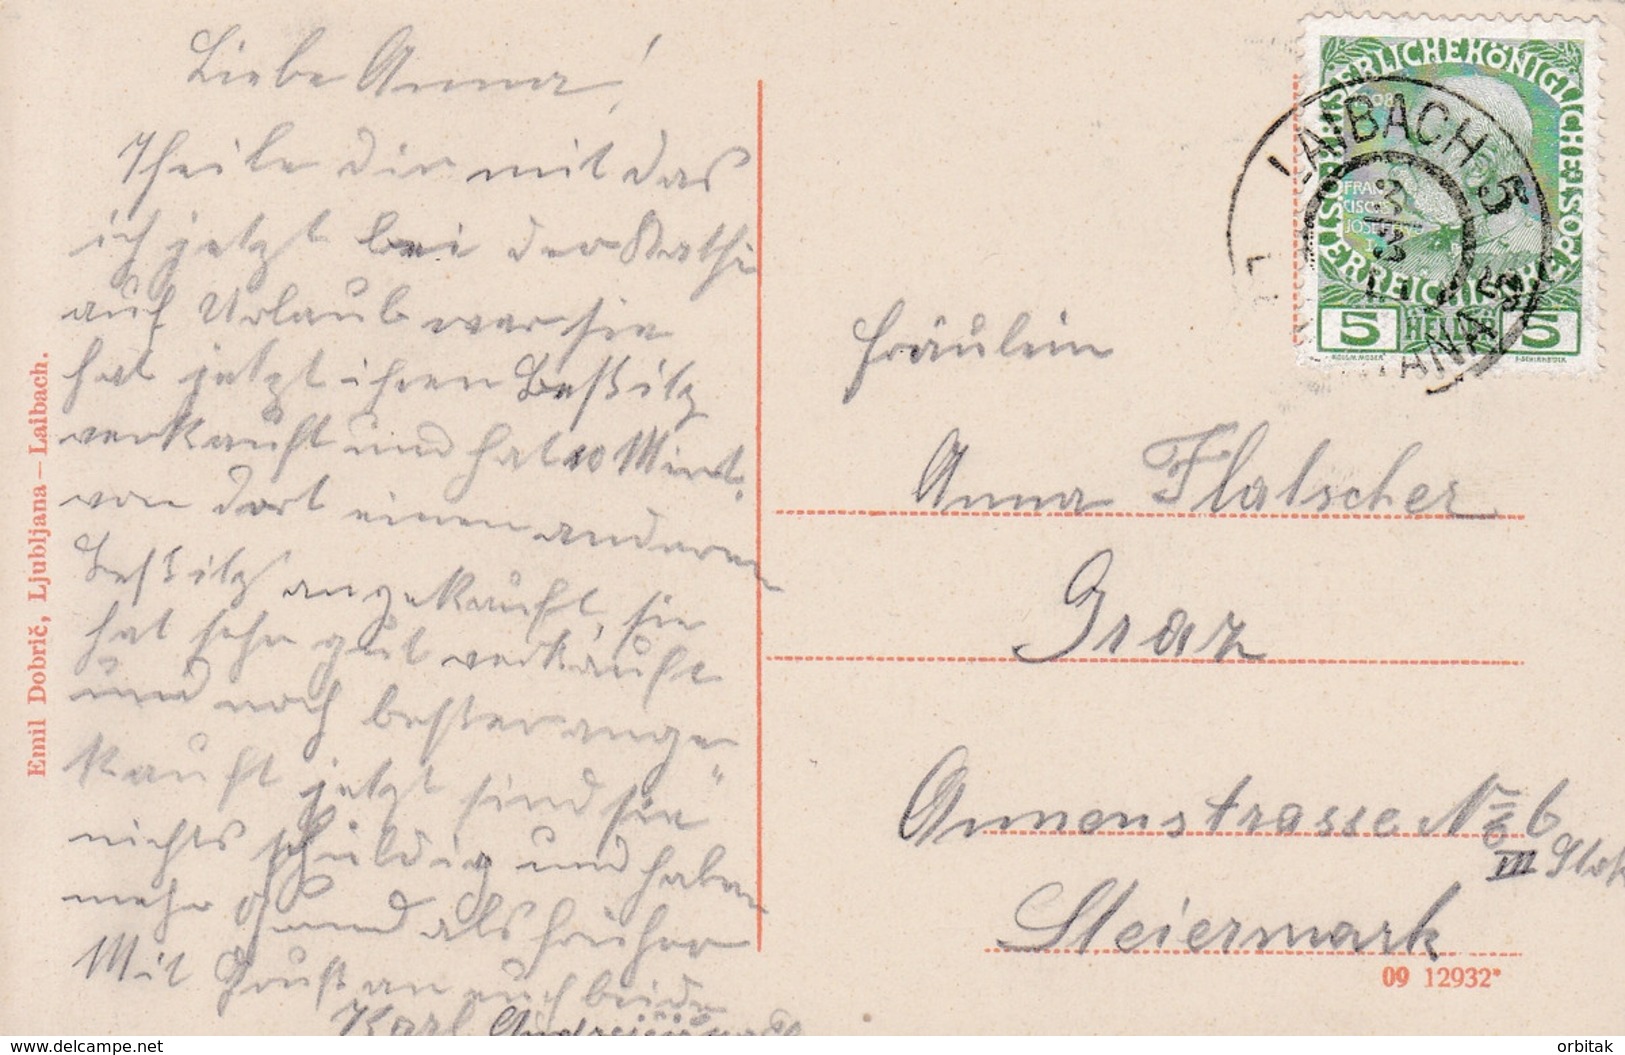 Liebe Anna!
Theile dir mit das
ich jetzt bei der Kathi
auf Urlaub war sie
hat jetzt ihren Beßitz
verkauft und hat 10 Mint.
von dort einen anderen
Beßitz angekauft, sie
hat sehr gut verkauft
und noch besser ange
kauft jetzt sind sie
nichts schuldig und haben
mehr Grund als früher
Mit Gruß an euch beide
Karl
Emil Dobrič, Ljubljana – Laibach.
KAISERLICHEKÖNIGLICHE
ÖSTERREICHISCHE POST
1908
FRAN
CISC
JOSEPH
I
5 HELLER 5
LAIBACH 5
Fräulein
Anna Flatscher
Graz
Annenstrasse No 6
III Stok
Steiermark
09 12932*
www.delcampe.net
orbitak